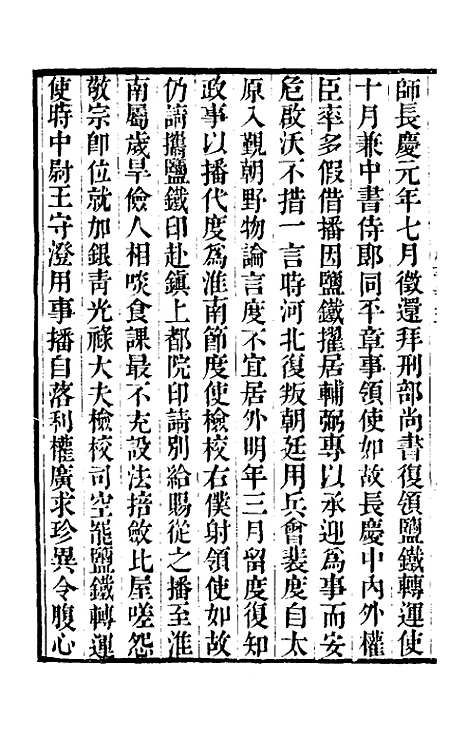 師長慶元年七月徵還拜刑部尚書復領鹽鐵轉運使
十月兼中書侍郎同平章事領使如故長慶中內外權
臣率多假借播因鹽鐵擢居輔弼專以承迎為事而安
危啟沃不措一言時河北復叛朝廷用兵會裴度自太
原入覲朝野物論言度不宜居外明年三月留度復知
政事以播代度為淮南節度使檢校右僕射領使如故
仍請攜鹽鐵印赴鎮上都院印請別給賜從之播至淮
南屬歲旱儉人相啖食課最不充設法掊斂比屋嗟怨
敬宗即位就加銀青光祿大夫檢校司空罷鹽鐵轉運
使時中尉王守澄用事播自落利權廣求珍異令腹心